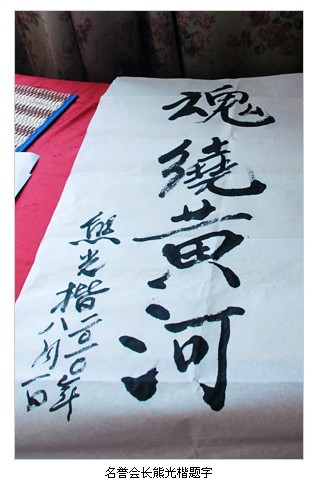 魂繞黄河
熊光楷二〇一〇年
八月一日
名誉会长熊光楷题字